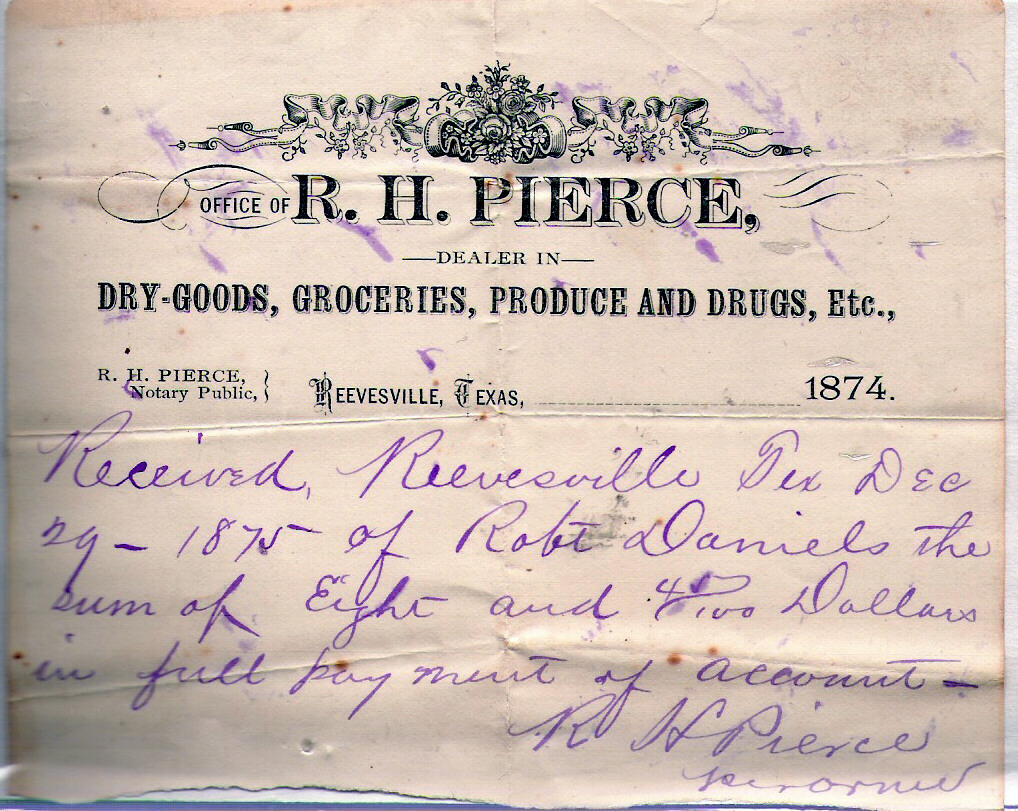 OFFICE OF R. H. PIERCE,
—DEALER IN—
DRY-GOODS, GROCERIES, PRODUCE AND DRUGS, Etc.,
R. H. PIERCE,
Notary Public,
REEVESVILLE, TEXAS, 1874.
Received, Reevesville Tex Dec
29 – 1875 of Robt Daniels the
sum of Eight and 45/100 Dollars
in full payment of account –
R H Pierce